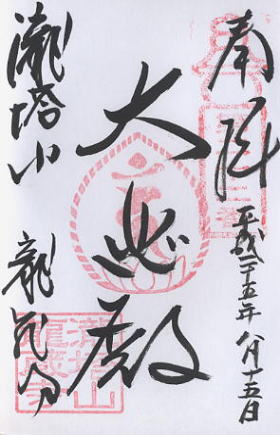 奉拝
平成二十五年 八月十五日
大悲殿
瀧塔山 龍盛寺
瀧塔山
龍盛寺